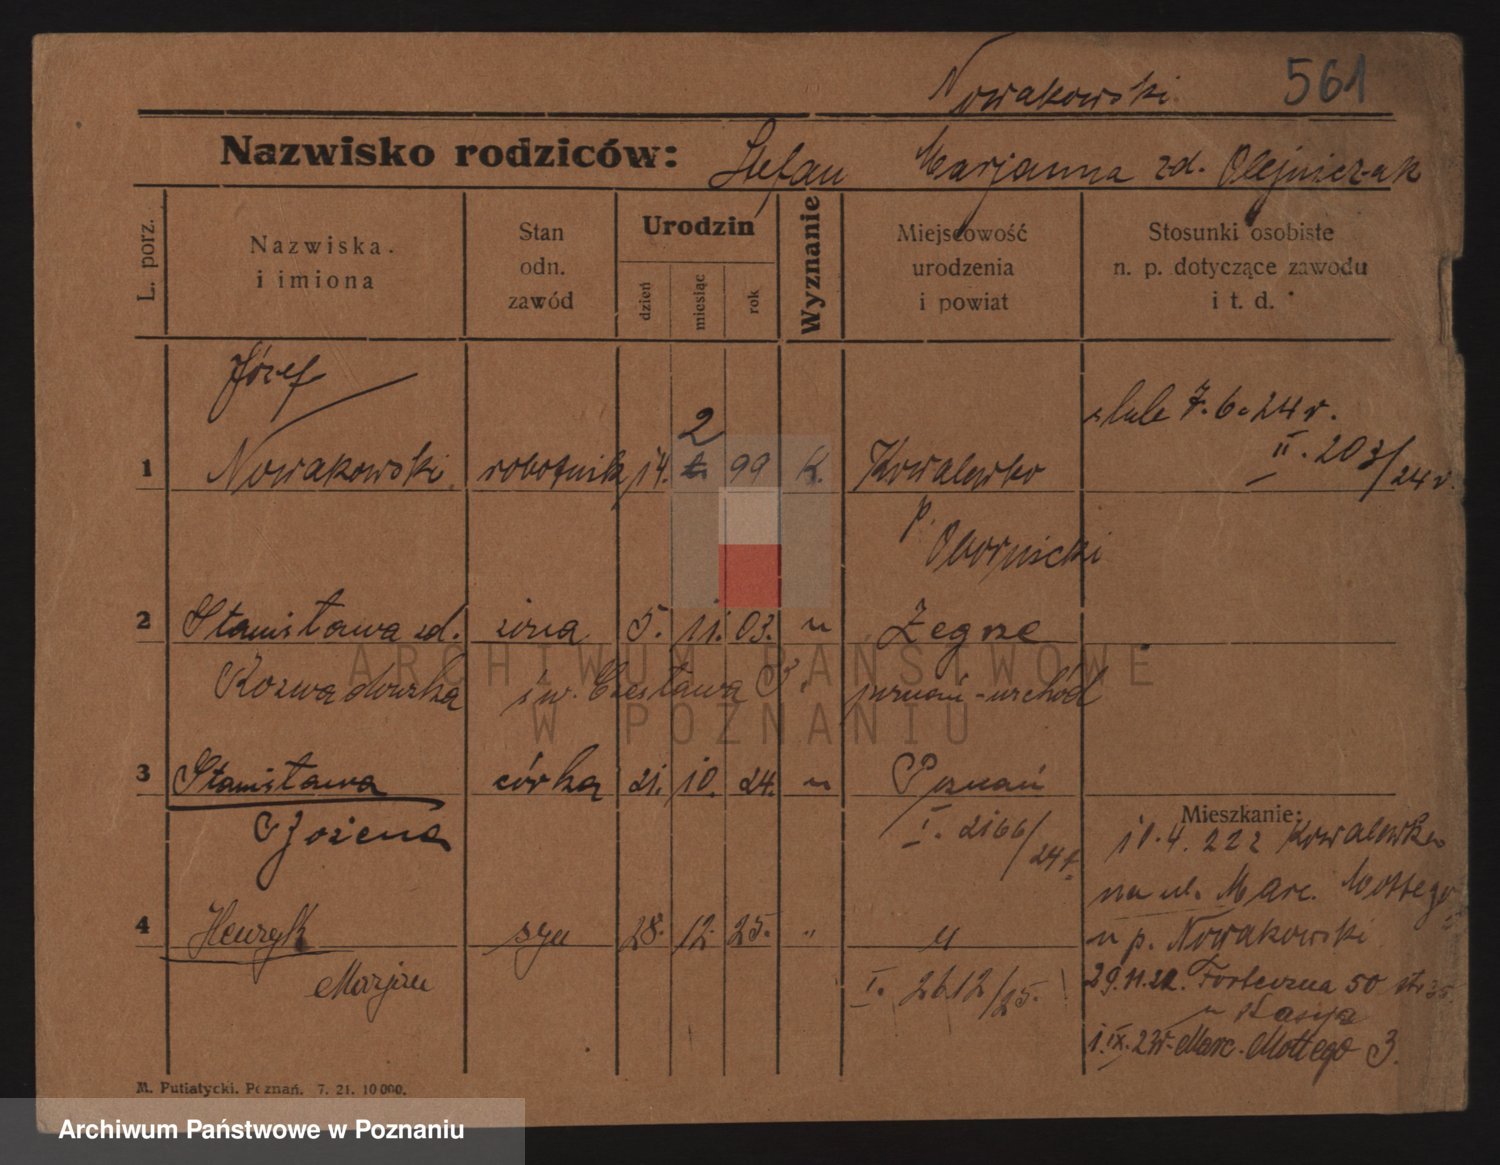 Nowakowski 561
Nazwisko rodziców: Stefan Marjanna zd. Olejniczak
L. porz.
Nazwiska.
i imiona
Stan
odn.
zawód
Urodzin
dzień
miesiąc
rok
Wyznanie
Miejscowość
urodzenia
i powiat
Stosunki osobiste
n. p. dotyczące zawodu
i t. d.
Józef
ślub 7.6.24 r.
2
II. 203/24 r.
1 Nowakowski robotnik 14. 99 K. Kowalewko
p. Obornicki
2 Stanisława zd. żona 5. 11. 03. " Żegrze
św. Czesława
3 Stanisława córka 21. 10. 24. " Poznań
I. 2166/24 r.
Bożena
4 Henryk syn 28. 12. 25. " "
Marjan
I. 2612/25.
Mieszkanie:
10.4.222 Kowalewko
na ul. Marc. Mottego
u p. Nowakowski
29.11.22. Forteczna 50
u Kasija
1.IX.23r. Marc. Mottego 3.
M. Putiatycki. Poznań. 7. 21. 10 000.
ARCHIWUM PAŃSTWOWE
W POZNANIU
Archiwum Państwowe w Poznaniu